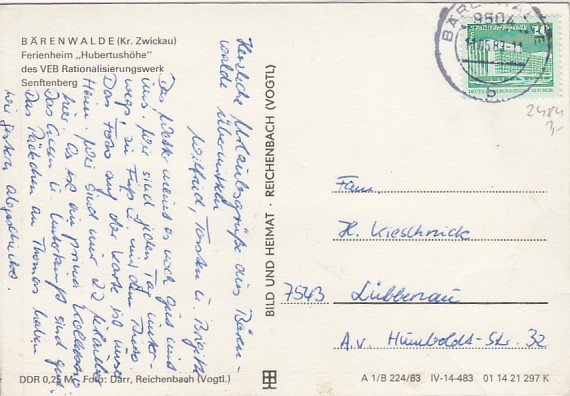 BÄRENWALDE (Kr. Zwickau)
Ferienheim „Hubertushöhe"
des VEB Rationalisierungswerk
Senftenberg
Herzliche Urlaubsgrüße aus Bären-
walde übermitteln
Wilfried, Torsten u. Brigitte
Das Wetter meint es noch gut mit
uns. Wir sind jeden Tag unter-
wegs, zu Fuß u. mit dem
Das Foto auf der Karte ist unser
Heim. Wir sind nur 22 Urlauber
hier. Es ist ein prima
Das Essen u. Unterkunft sind gut.
Das Päckchen an Thomas haben
wir gestern abgeschickt.
DDR 0,25 M · Foto: Darr, Reichenbach (Vogtl.)
BILD UND HEIMAT · REICHENBACH (VOGTL)
BÄRENWALDE
9504
83-11
b
DEUTSCHE DEMOKRATISCHE REPUBLIK
2484
3,-
Fam.
H. Kieschnick
7543 Lübbenau
A.v. Humboldt-Str. 32
A 1/B 224/83 IV-14-483 01 14 21 297 K